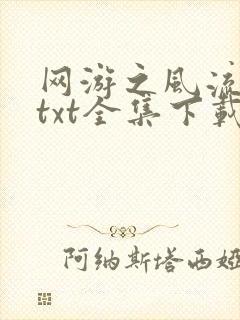 网游之风流
txt全集下载
阿纳斯塔西娅